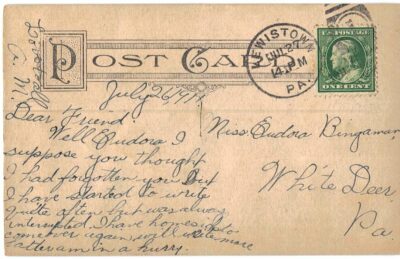 POST CARD
LEWISTOWN
JUL 27
PM
PA.
U.S. POSTAGE
ONE CENT
July 26/1911
Dear Friend
Well Eudora I
suppose you thought
I had forgotten you but
I have started to write
quite often but was always
interrupted. I have hopes to
come over again, well write more
later am in a hurry.
Miss Eudora Bingaman
White Deer
Pa